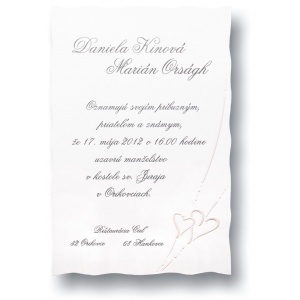 Daniela Kinová
Marián Orságh
Oznamujú svojim príbuzným,
priateľom a známym,
že 17. mája 2012 o 16.00 hodine
uzavrú manželstvo
v kostole sv. Juraja
v Orikovciach.
Reštaurácia Ciel
32 Orikovce 63 Hankovce